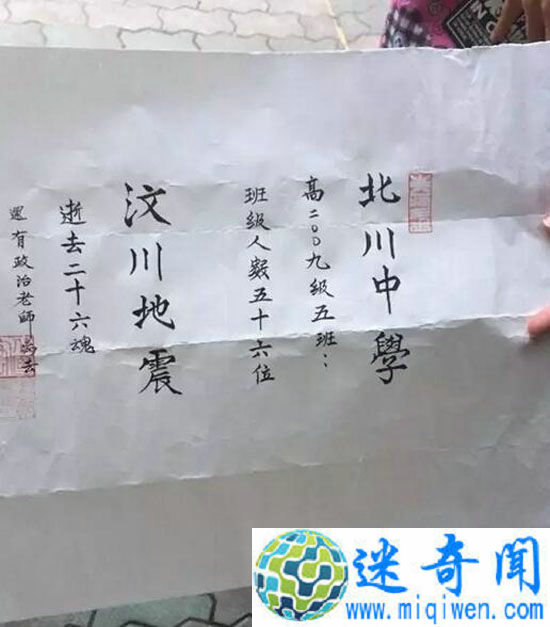 北川中學
高二〇〇九級五班：
班級人数五十六位
汶川地震
逝去二十六魂
還有政治老師
去
迷奇闻
www.miqiwen.com